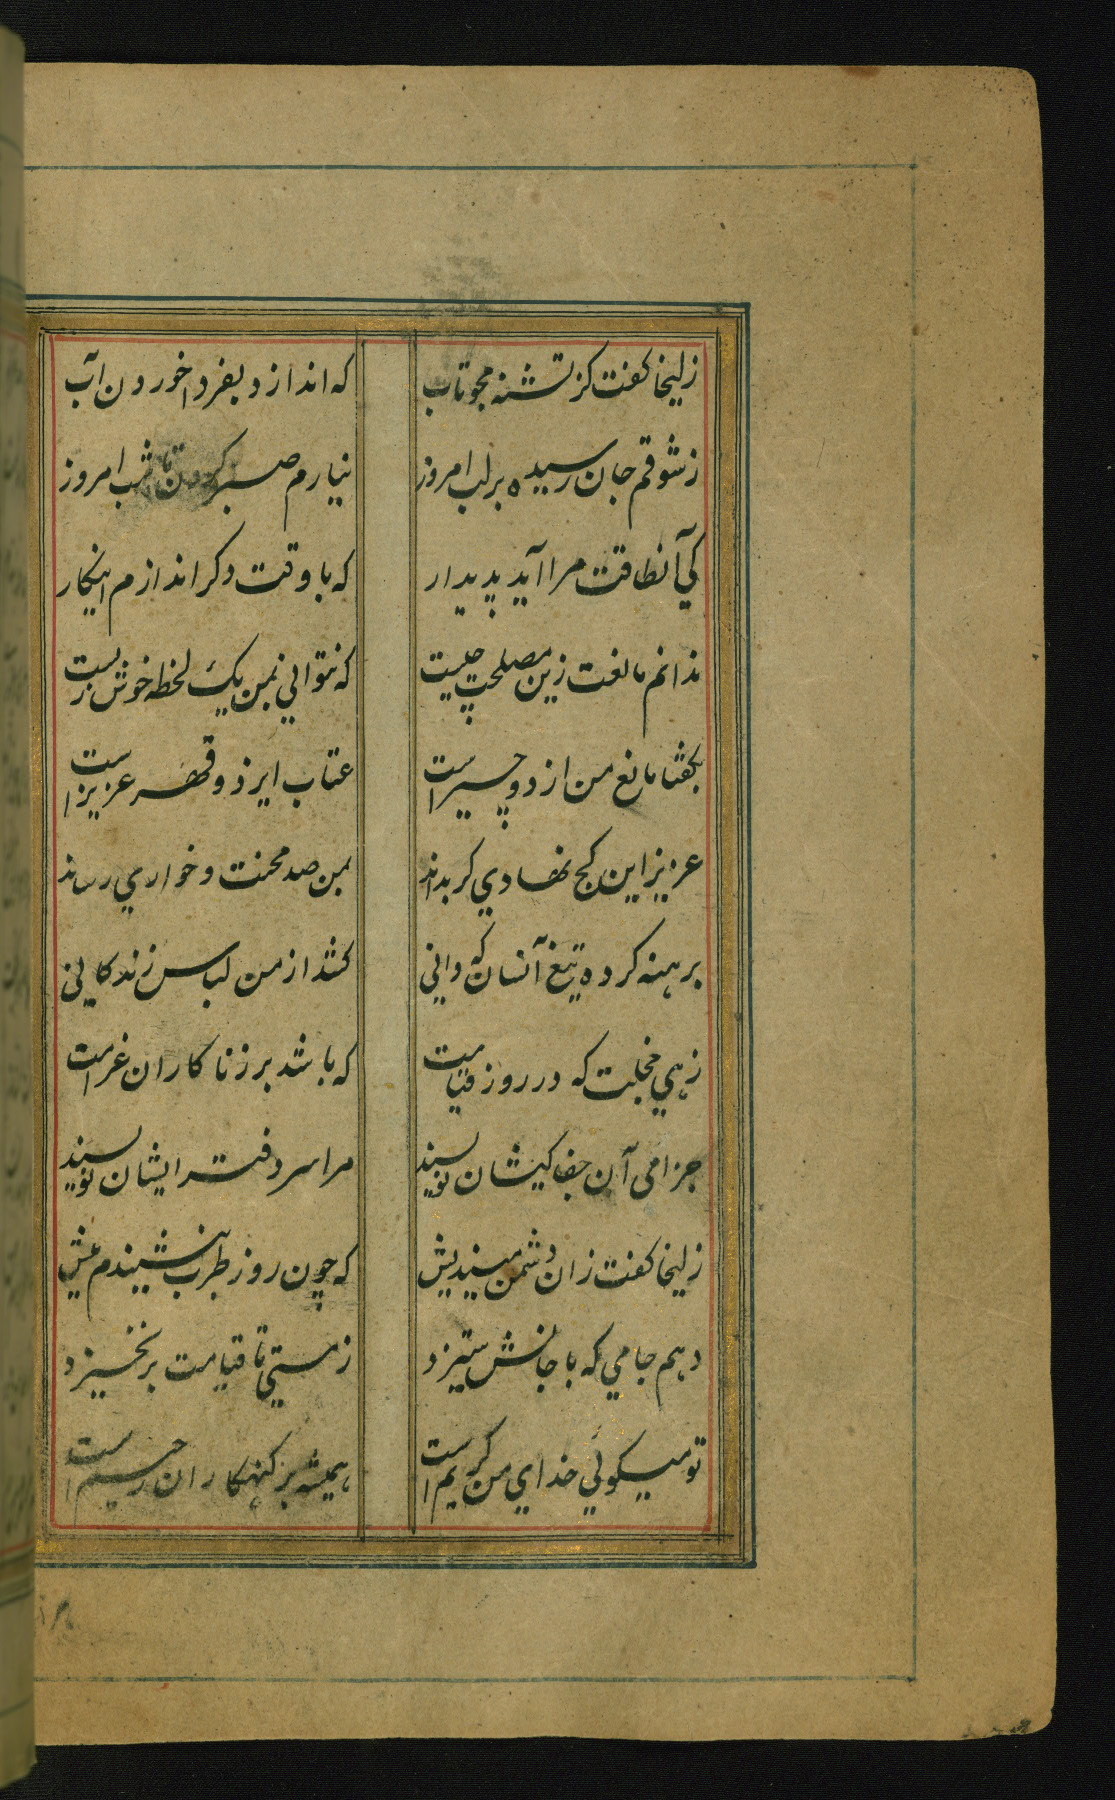 زلیخا کفت کز تشنه مجو تاب که اندازد بفردا خوردن آب
ز شوقم جان رسیده بر لب امروز نیارم صبر کردن تا شب امروز
کی آنطاقت مرا آید پدیدار که با وقت دکر اندازم اینکار
ندانم مانعت زین مصلحت چیست که نتوانی بمن یک لحظه خوش زیست
بکفتا مانع من از دو چیز است عتاب ایزد و قهر عزیز است
عزیز این کج نهادی کر بداند بمن صد محنت و خواری رساند
برهنه کرده تیغ آنسان که دانی کشد از من لباس زندکانی
زهی خجلت که در روز قیامت که باشد بر زناکاران غرامت
جزای آن جفا کیشان نویسند مرا سر دفتر ایشان نویسند
زلیخا کفت زان دشمن میندیش که چون روز طرب بنشیندم پیش
دهم جامی که با جانش ستیزد ز مستی تا قیامت برنخیزد
تو میکوئی خدای من کریم است همیشه بر کنهکاران رحیم است